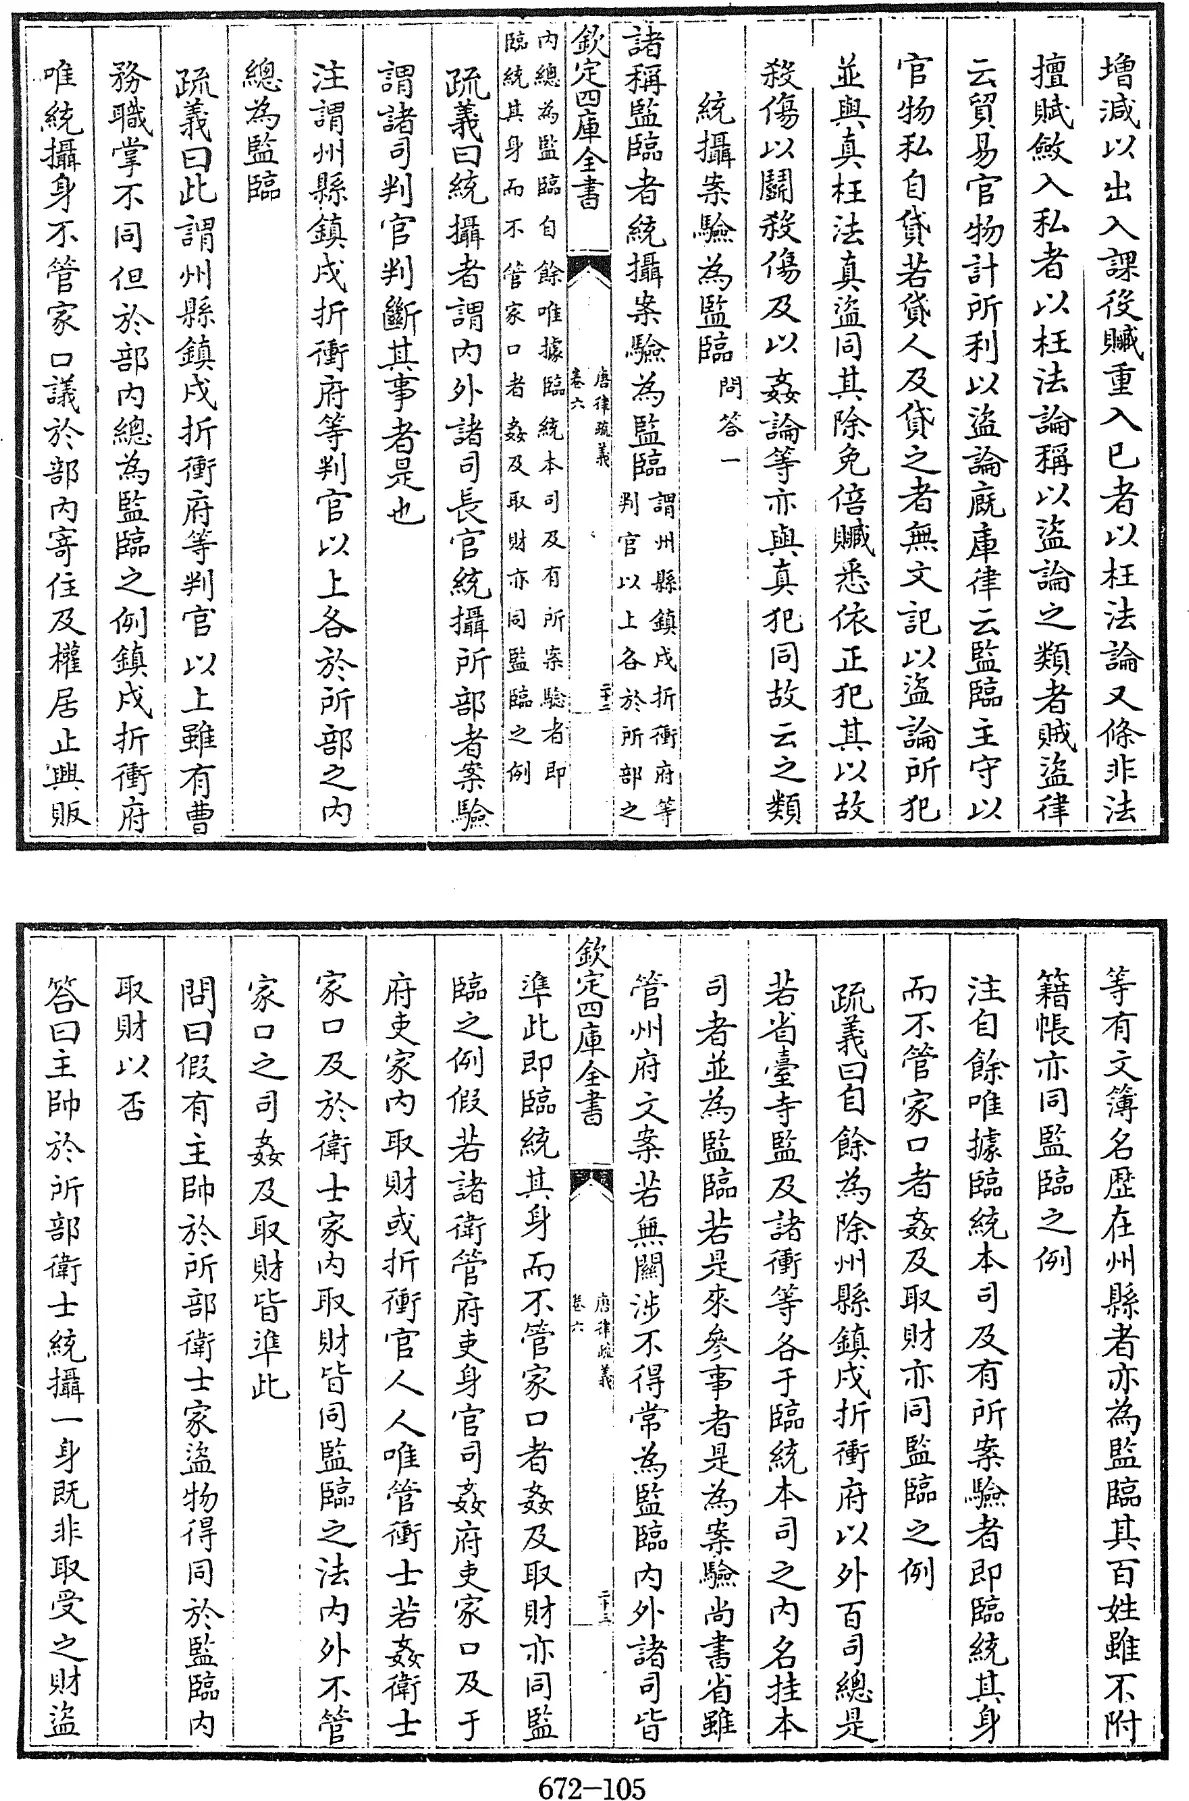 增減以出入課役贓重入已者以枉法論又條非法
擅賦斂入私者以枉法論稱以盜論之類者賊盜律
云貿易官物計所利以盜論廐庫律云監臨主守以
官物私自貸若貸人及貸之者無文記以盜論所犯
並與真枉法真盜同其除免倍贓悉依正犯其以故
殺傷以鬭殺傷及以姦論等亦與真犯同故云之類
統攝案驗為監臨問答一
諸稱監臨者統攝案驗為監臨謂州縣鎮戍折衝府等
判官以上各於所部之
欽定四庫全書
唐律疏義
卷六
二十二
內總為監臨自餘唯據臨統本司及有所案驗者即
臨統其身而不管家口者姦及取財亦同監臨之例
疏義曰統攝者謂內外諸司長官統攝所部者案驗
謂諸司判官判斷其事者是也
注謂州縣鎮戍折衝府等判官以上各於所部之內
總為監臨
疏義曰此謂州縣鎮戍折衝府等判官以上雖有曹
務職掌不同但於部內總為監臨之例鎮戍折衝府
唯統攝身不管家口議於部內寄住及權居止興販
等有文簿名歷在州縣者亦為監臨其百姓雖不附
籍帳亦同監臨之例
注自餘唯據臨統本司及有所案驗者即臨統其身
而不管家口者姦及取財亦同監臨之例
疏義曰自餘為除州縣鎮戍折衝府以外百司總是
若省臺寺監及諸衝等各于臨統本司之內名挂本
司者並為監臨若是來參事者是為案驗尚書省雖
管州府文案若無關涉不得常為監臨內外諸司皆
欽定四庫全書
唐律疏義
卷六
二十三
準此即臨統其身而不管家口者姦及取財亦同監
臨之例假若諸衛管府吏身官司姦府吏家口及于
府吏家內取財或折衝官人人唯管衝士若姦衛士
家口及於衛士家內取財皆同監臨之法內外不管
家口之司姦及取財皆準此
問曰假有主帥於所部衛士家盜物得同於監臨內
取財以否
答曰主帥於所部衛士統攝一身既非取受之財盜
672-105